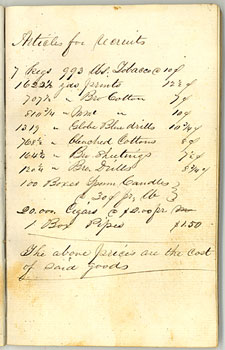 Articles for recruits
7 Kegs 993 lbs. Tobacco @ 10¢
yds prints 12½¢
707½ " Bro Cotton 7¢
810¾ " " 10¢
1319 " Globe Blue drills 10¾¢
768½ " bleached Cottons 8¢
164½ " Bro Sheetings 7½¢
120¼ " Bro. Drills 8¾¢
100 Boxes Sperm Candles }
@ 20¢ pr. lb }
20.000 Cigars @ $2.00 pr
1 Box Pipes $1.50
The above prices are the cost
of said goods